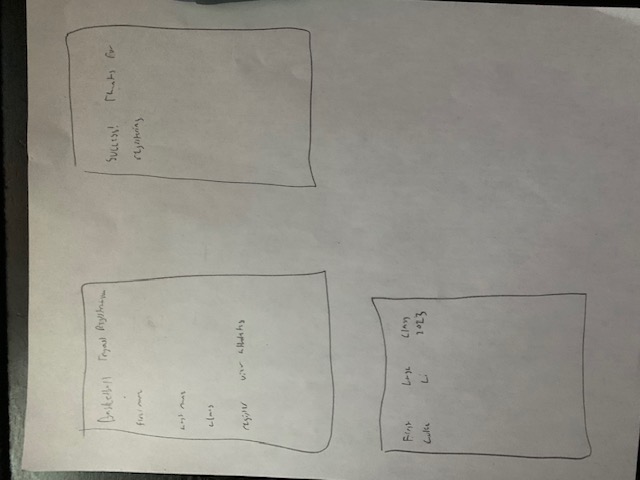 Basketball Tryout Registration
first name
last name
class
register view athletes
Success! Thanks for
registering
First Last Class
Luke Li 2023